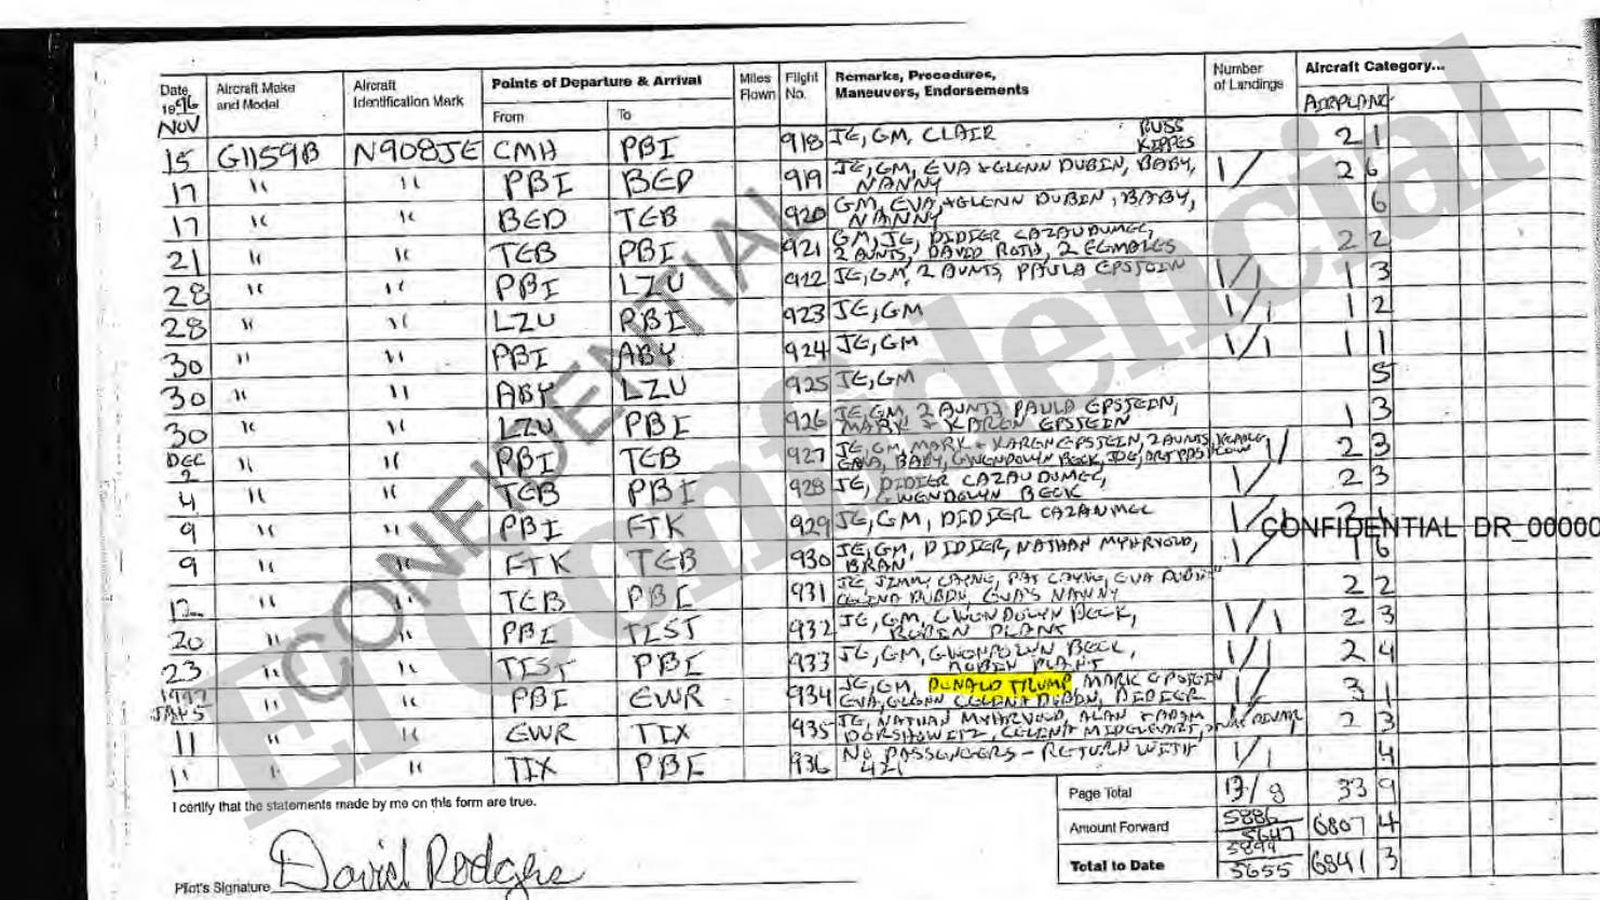 Date Aircraft Make Aircraft Points of Departure & Arrival Miles Flight Remarks, Procedures, Number Aircraft Category...
1996 and Model Identification Mark Flown No. Maneuvers, Endorsements of Landings
NOV From To AIRPLANE
15 G1159B N908JE CMH PBI 918 JE, GM, CLAIR RUSS 2 1
17 " " PBI BED 919 JE, GM, EVA + GLENN DUBIN, BABY, 1/ 2 6
NANNY
17 " " BED TEB 920 GM, EVA + GLENN DUBIN, BABY, 6
NANNY
21 " " TEB PBI 921 GM, JE, DIDIER 2 2
2 AUNTS, DAVID ROTH, 2 FEMALES
28 " " PBI LZU 922 JE, GM, 2 AUNTS, PAULA EPSTEIN 1/1 1 3
28 " " LZU PBI 923 JE, GM 1/1 1 2
30 " " PBI ABY 924 JE, GM 1/1 1 1
30 " " ABY LZU 925 JE, GM 5
30 " " LZU PBI 926 JE, GM, 2 AUNTS, PAULA EPSTEIN, 1 3
MARK + KAREN EPSTEIN
DEC
2 " " PBI TEB 927 JE, GM, MARK + KAREN EPSTEIN, 2 AUNTS, 1/ 2 3
EVA, BABY, GWENDOLYN BECK, JOE
4 " " TEB PBI 928 JE, DIDIER 1/ 2 3
GWENDOLYN BECK
9 " " PBI FTK 929 JE, GM, DIDIER 1/ 2
CONFIDENTIAL DR_00000
9 " " FTK TEB 930 JE, GM, DIDIER, NATHAN MYHRVOLD, 1/ 1 6
BRAN
12 " " TEB PBI 931 JE, JIMMY CAYNE, PAT CAYNE, EVA DUBIN 2 2
CELINA DUBIN, EVA'S NANNY
20 " " PBI TIST 932 JE, GM, GWENDOLYN BECK, 1/1 2 3
23 " " TIST PBI 933 JE, GM, GWENDOLYN BECK, 1/1 2 4
1997
JAN 5 " " PBI EWR 934 JE, GM, DONALD TRUMP, MARK EPSTEIN 1/ 3 1
EVA, GLENN CELINA DUBIN, DIDIER
11 " " EWR TIX 935 JE, NATHAN MYHRVOLD, ALAN + ADAM 2 3
DORSHOWITZ
11 " " TIX PBI 936 NO PASSENGERS - RETURN WITH 1/1 4
421
I certify that the statements made by me on this form are true.
Page Total 13/9 33 9
Amount Forward 5886 5647 6807 4
Total to Date 5899 5655 6841 3
Pilot's Signature David Rodgers
CONFIDENTIAL
El Confidencial